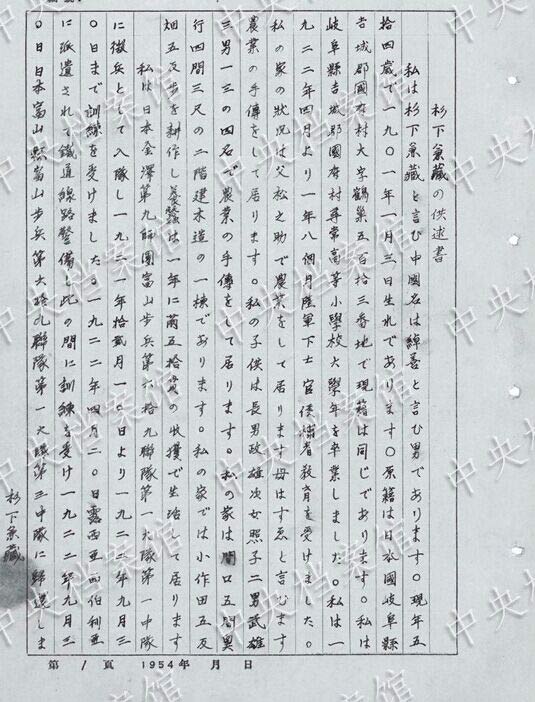 杉下兼藏の供述書
私は杉下兼藏と言ひ中國名は綽善と言ひ男であります。現年五
拾四歳で一九〇一年一月三日生れであります。原籍は日本國岐阜縣
吉城郡國府村大字鶴巣五百拾三番地で現籍は同じであります。私は
岐阜縣吉城郡國府村尋常高等小學校六學年を卒業しました。私は一
九二二年四月より一年八個月陸軍下士官候補者教育を受けました。
私の家の狀況は父松之助で農業をして居ります母はすゑと言ひます
農業の手傳をして居ります。私の子供は長男政雄次女照子二男武雄
三男一三の四名で農業の手傳をして居ります。私の家は間口五間奥
行四間三尺の二階建木造の一棟であります。私の家では小作田五反
畑五反歩を耕作し養蠶は一年に繭五拾貫の收獲で生活して居ります
私は日本金澤第九師團富山歩兵第六拾九聯隊第一大隊第一中隊
に徴兵として入隊し一九二一年拾貳月一〇日より一九二二年九月三
〇日まで訓練を受けました。一九二二年四月二〇日露西亜西伯利亜
に派遣されて鐵道線路警備し此の間に訓練を受け一九二二年九月三
〇日日本富山縣富山歩兵第六拾九聯隊第一大隊第三中隊に歸還しま
杉下兼藏
第 1 頁 1954年 月 日
中央档案馆